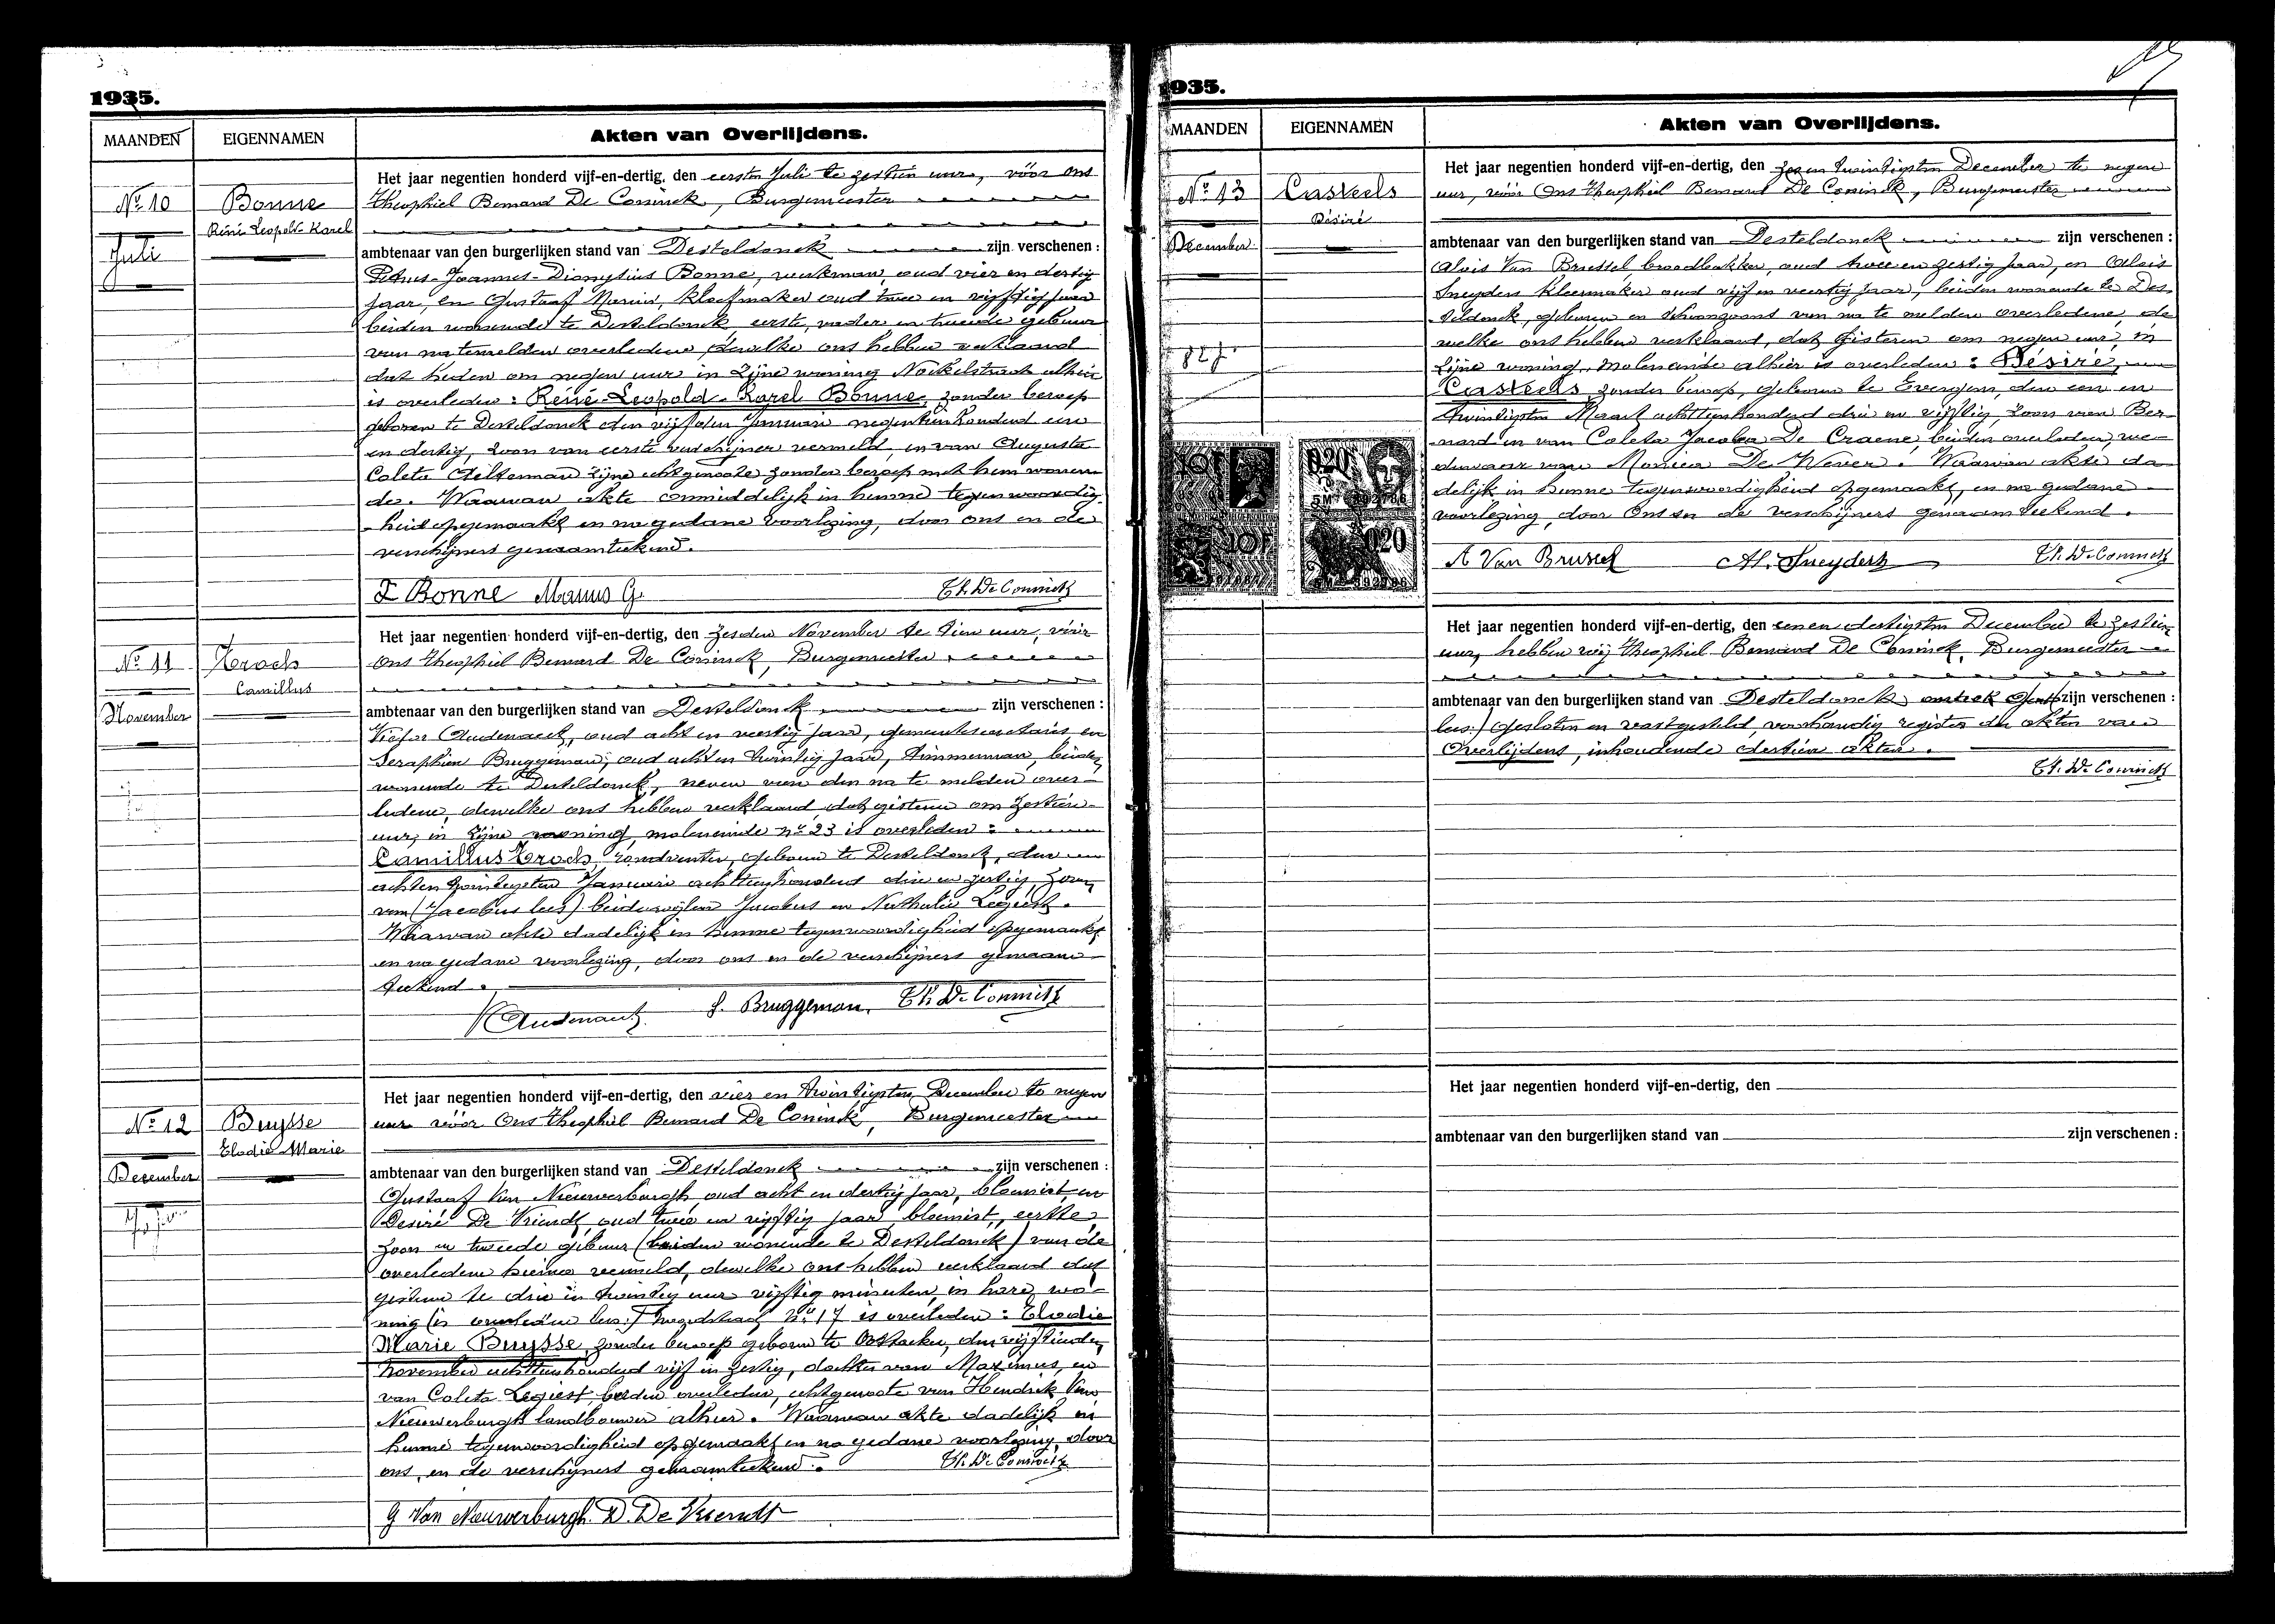 1935.
MAANDEN
EIGENNAMEN
Akten van Overlijdens.
Nº 10
Juli
Bonne
Réné Leopold Karel
Het jaar negentien honderd vijf-en-dertig, den eersten Juli te zestien uur, vóór ons
Theophiel Bernard De Coninck, Burgemeester
ambtenaar van den burgerlijken stand van Desteldonck zijn verschenen :
Petrus-Joannes-Dionysius Bonne, werkman, oud vier en dertig
jaar, en Gustaaf Marius, kleefmaker oud twee en vijftig jaar
beiden wonende te Desteldonck, eerste, vader, en tweede gebuur
van na temelden overledene, dewelke ons hebben verklaard
dat heden om negen uur in zijne woning alhier
is overleden : Réné-Leopold-Karel Bonne, zonder beroep
geboren te Desteldonck den vijfden Januari negentienhonderd een
en dertig, zoon van eerste verschijner vermeld, en van Augusta
Coleta zijne echtgenoote zonder beroep met hem wonen-
de. Waarvan akte onmiddelijk in hunne tegenwoordig-
heid opgemaakt en na gedane voorlezing, door ons en de
verschijners genaamteekend.
Bonne Marius G. Th. De Coninck
Nº 11
November
Camillus
Het jaar negentien honderd vijf-en-dertig, den zesden November te tien uur, vóór
ons Theophiel Bernard De Coninck, Burgemeester
ambtenaar van den burgerlijken stand van Desteldonck zijn verschenen :
Victor Audenaert, oud acht en veertig jaar, gemeentesecretaris, en
Seraphien Bruggeman, oud acht en twintig jaar, timmerman, beiden
wonende te Desteldonck, neven van den na te melden over-
ledene, dewelke ons hebben verklaard, dat gisteren om zestien
uur, in zijne woning, moleneinde nº 23 is overleden :
Camillus geboren te Desteldonck, den
achten twintigsten Januari achttienhonderd drie en zestig, zoon
van (Jacobus lees) beide wijlen Jacobus en Nathalie Legiest.
Waarvan akte dadelijk in hunne tegenwoordigheid opgemaakt
en na gedane voorlezing, door ons en de verschijners genaam-
teekend.
V Audenaert S. Bruggeman, Th. De Coninck
Nº 12
December
Buysse
Elodie Marie
Het jaar negentien honderd vijf-en-dertig, den vier en twintigsten December te negen
uur vóór Ons Theophiel Bernard De Coninck, Burgemeester
ambtenaar van den burgerlijken stand van Desteldonck zijn verschenen :
Gustaaf Van Nieuwerburgh oud acht en dertig jaar, bloemist, en
Desiré De Vriendt, oud twee en vijftig jaar, bloemist, eerste,
zoon en tweede gebuur (beiden wonende te Desteldonck) van de
overledene hierna vermeld, dewelke ons hebben verklaard dat
gisteren te drie en twintig uur vijftig minuten, in hare wo-
ning (is overleden lees:) nº 17 is overleden : Elodie
Marie Buysse, zonder beroep geboren te Oostacker, den vijftienden
November achttienhonderd vijf en zestig, dochter van Maximus, en
van Coleta Legiest, beiden overleden, echtgenoote van Hendrik Van
Nieuwerburgh landbouwer alhier. Waarvan akte dadelijk in
hunne tegenwoordigheid opgemaakt en na gedane voorlezing, door
ons, en de verschijners genaamteekend. Th. De Coninck
G Van Nieuwerburgh. D. De Vriendt
1935.
MAANDEN
EIGENNAMEN
Akten van Overlijdens.
Nº 13
December
Casteels
Désiré
Het jaar negentien honderd vijf-en-dertig, den zes en twintigsten December te negen
uur, vóór Ons Theophiel Bernard De Coninck, Burgemeester
ambtenaar van den burgerlijken stand van Desteldonck zijn verschenen :
Aloïs Van Brussel, broodbakker, oud twee en zestig jaar, en Aloïs
Sneyders kleermaker oud vijf en veertig jaar, beiden wonende te Des-
teldonck, geburen en schoonzoons van na te melden overledene, de
welke ons hebben verklaard, dat gisteren om negen uur, in
zijne woning, moleneinde alhier is overleden : Désiré
Casteels zonder beroep, geboren te Evergem, den een en
twintigsten Maart achttienhonderd drie en vijftig, zoon van Ber-
nard en van Coleta Jacoba De Craene, beiden overleden, we-
duwaar van Monica De Wever. Waarvan akte da-
delijk in hunne tegenwoordigheid opgemaakt, en na gedane
voorlezing, door Ons en de verschijners genaamteekend.
A Van Brussel Al. Sneyders Th. De Coninck
10F
0.20
5M 392786
10F
0.20
5M 392786
Het jaar negentien honderd vijf-en-dertig, den een en dertigsten December te zestien
uur, hebben wij Theophiel Bernard De Coninck, Burgemeester
ambtenaar van den burgerlijken stand van Desteldonck zijn verschenen :
lees:) gesloten en vastgesteld, voorhandig register der akten van
Overlijdens, inhoudende dertien akten.
Th. De Coninck
Het jaar negentien honderd vijf-en-dertig, den
ambtenaar van den burgerlijken stand van zijn verschenen :